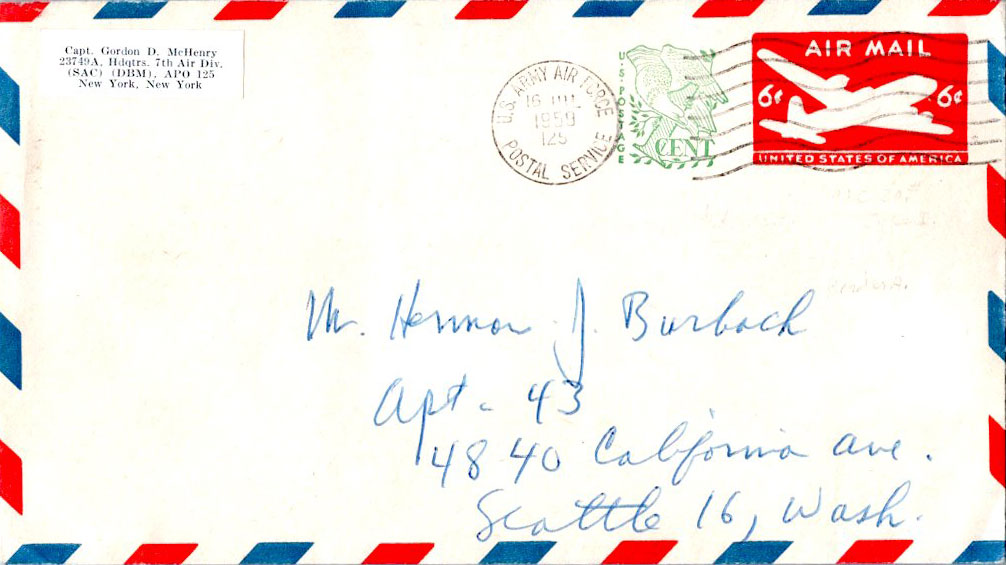 Capt. Gordon D. McHenry
23749A, Hdqtrs. 7th Air Div.
(SAC) (DBM), APO 125
New York, New York
U.S. ARMY AIR FORCE
16 JUL
1959
125
POSTAL SERVICE
U.S. POSTAGE
CENT
AIR MAIL
6¢ 6¢
UNITED STATES OF AMERICA
Mr. Herman J. Burbach
Apt. 43
4840 California Ave.
Seattle 16, Wash.